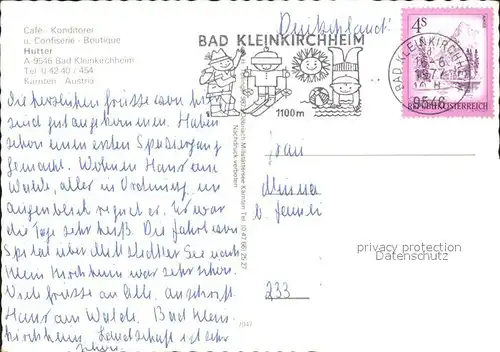 Cafe - Konditorei
u. Confiserie - Boutique
Hutter
A-9546 Bad Kleinkirchheim
Tel. 0 42 40 / 454
Kärnten Austria
Deutschland!
BAD KLEINKIRCHHEIM
1100 m
BAD KLEINKIRCHHEIM
9546
4S
REPUBLIK ÖSTERREICH
die herzlichen Grüsse von hier
sind gut angekommen. Haben
schon einen ersten Spaziergang
gemacht. Wohnen Haus am
Walde, alles in Ordnung, im
Augenblick regnet es. Es war
die Tage sehr heiß. Die Fahrt von
Spittal über Millstätter See nach
Klein Kirchheim war sehr schön.
Viele Grüsse an alle. Anschrift
Haus am Walde, Bad Klein-
kirchheim. Landschaft ist sehr
schön.
Frau
233
Nachdruck verboten
privacy protection
Datenschutz